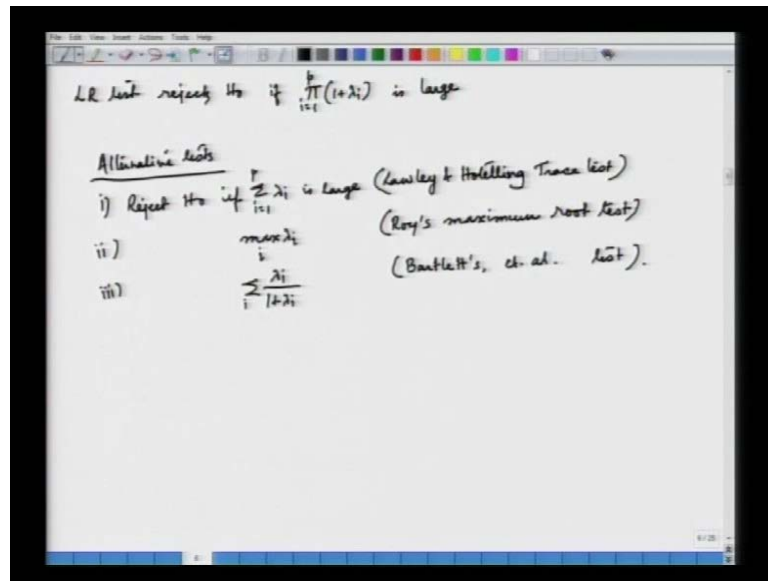 File Edit View Insert Actions Tools Help
LR test rejects H₀ if ∏_{i=1}^{p} (1+λᵢ) is large
Alternative tests
i) Reject H₀ if ∑_{i=1}^{p} λᵢ is large (Lawley & Hotelling Trace test)
ii) max_i λᵢ (Roy's maximum root test)
iii) ∑_i λᵢ/(1+λᵢ) (Bartlett's, et. al. test).